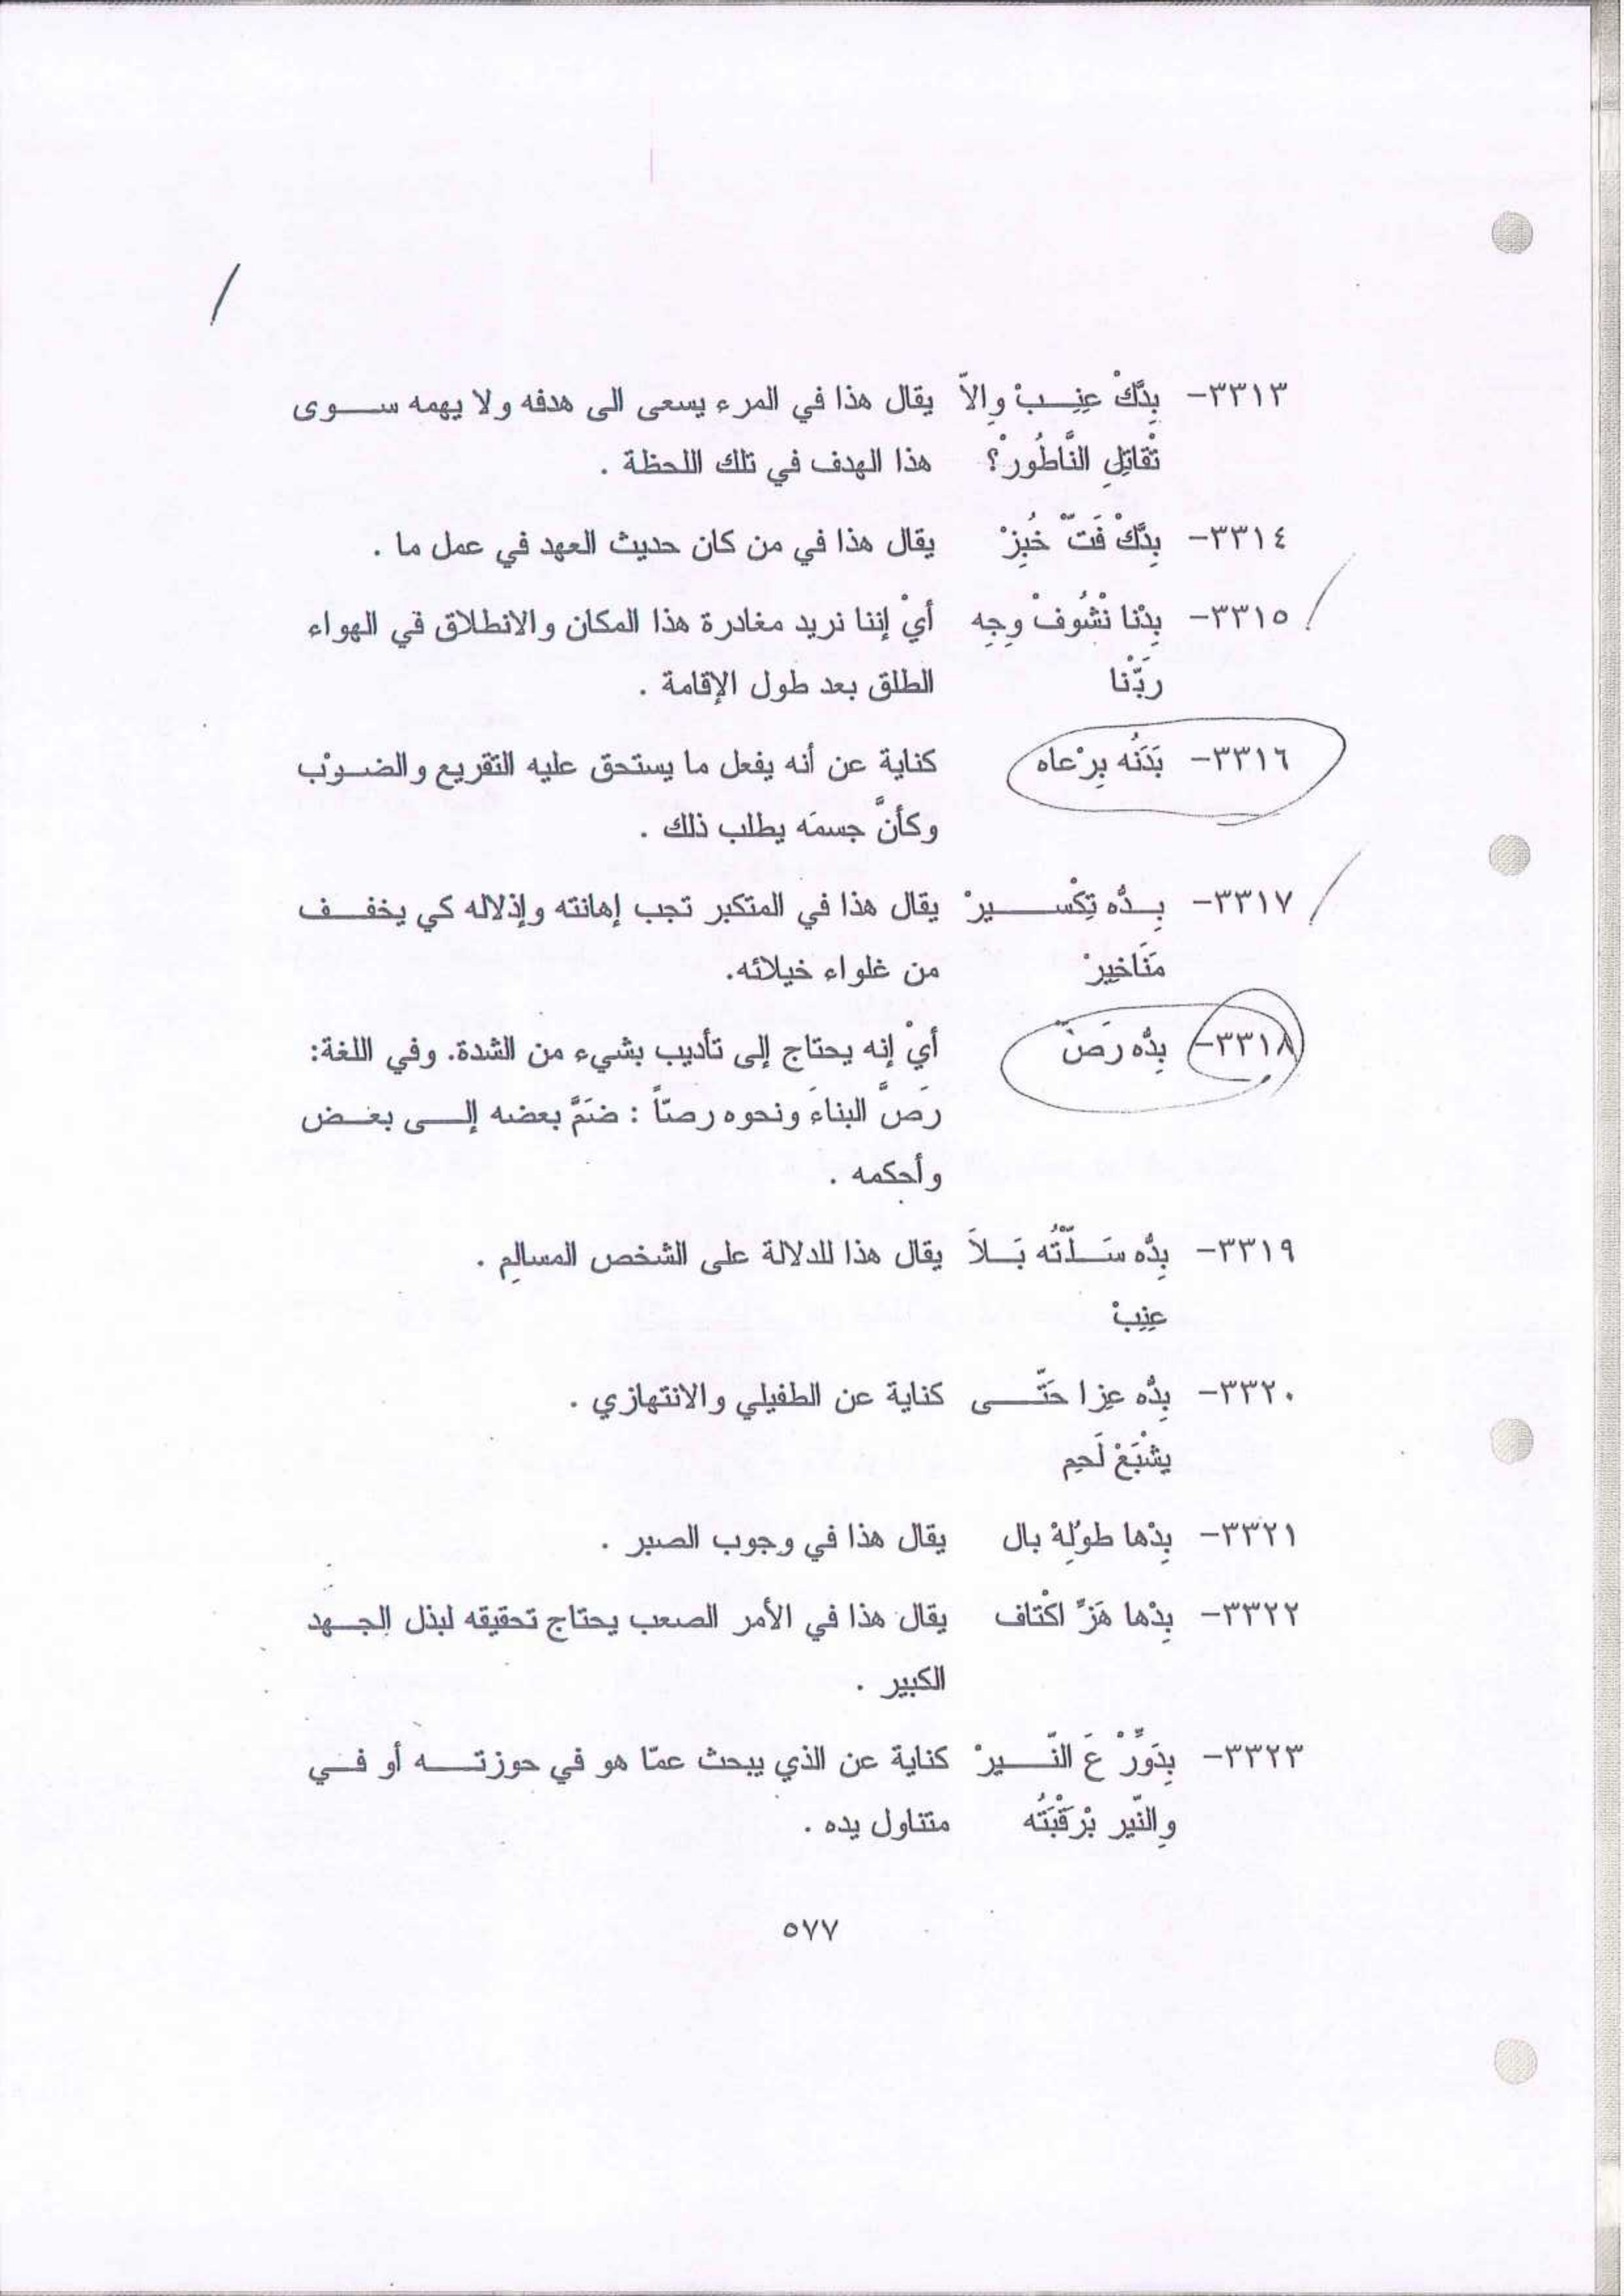 ٣٣١٣- بِدَّكْ عِنِـبْ وِالاّ يقال هذا في المرء يسعى الى هدفه ولا يهمه سـوى
تْقاتِلِ النَّاطُورْ؟ هذا الهدف في تلك اللحظة .
٣٣١٤- بِدَّكْ فَتّْ خُبِزْ يقال هذا في من كان حديث العهد في عمل ما .
٣٣١٥- بِدْنا نْشُوفْ وِجِه أيْ إننا نريد مغادرة هذا المكان والانطلاق في الهواء
رَبّْنا الطلق بعد طول الإقامة .
٣٣١٦- بَدَنُه بِرْعاه كناية عن أنه يفعل ما يستحق عليه التقريع والضـرْب
وكأنَّ جسمَه يطلب ذلك .
٣٣١٧- بِـدُّه تِكْسـيرْ يقال هذا في المتكبر تجب إهانته وإذلاله كي يخفـف
مَنَاخيرْ من غلواء خيلائه.
٣٣١٨- بِدُّه رَصّْ أيْ إنه يحتاج إلى تأديب بشيء من الشدة. وفي اللغة:
رَصَّ البناءَ ونحوه رصّاً : ضَمَّ بعضه إلـى بعـض
وأحكمه .
٣٣١٩- بِدُّه سَـلّْتُه بَـلاَ يقال هذا للدلالة على الشخص المسالِم .
عِنِبْ
٣٣٢٠- بِدُّه عِزا حَتّـى كناية عن الطفيلي والانتهازي .
يِشْبَعْ لَحِم
٣٣٢١- بِدْها طولِةْ بال يقال هذا في وجوب الصبر .
٣٣٢٢- بِدْها هَزِّ اكْتاف يقال هذا في الأمر الصعب يحتاج تحقيقه لبذل الجـهد
الكبير .
٣٣٢٣- بِدَوِّرْ عَ النّـيرْ كناية عن الذي يبحث عمّا هو في حوزتـه أو فـي
وِالنّير بْرَقْبَتُه متناول يده .
٥٧٧